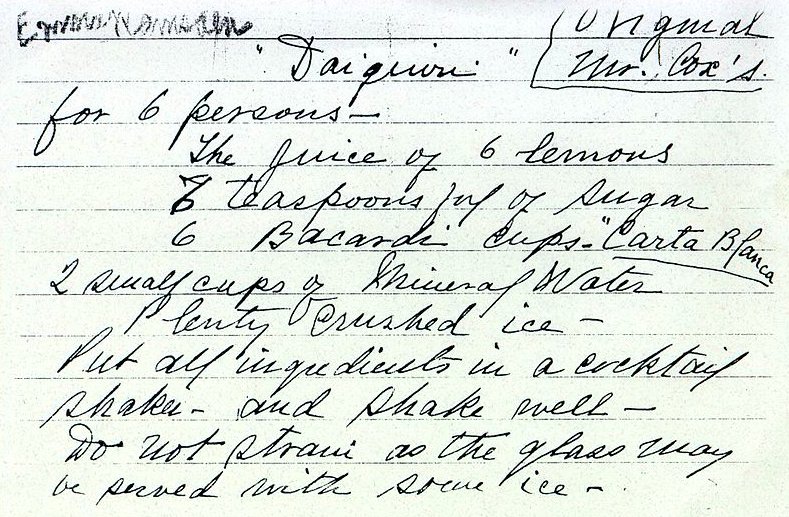 Original
"Daiquiri" Mr. Cox's.
for 6 persons—
The juice of 6 lemons
6 teaspoons ful of sugar
6 Bacardi cups—"Carta Blanca
2 small cups of Mineral Water
Plenty crushed ice—
Put all ingredients in a cocktail
shaker— and shake well—
Do not strain as the glass may
be served with some ice—.